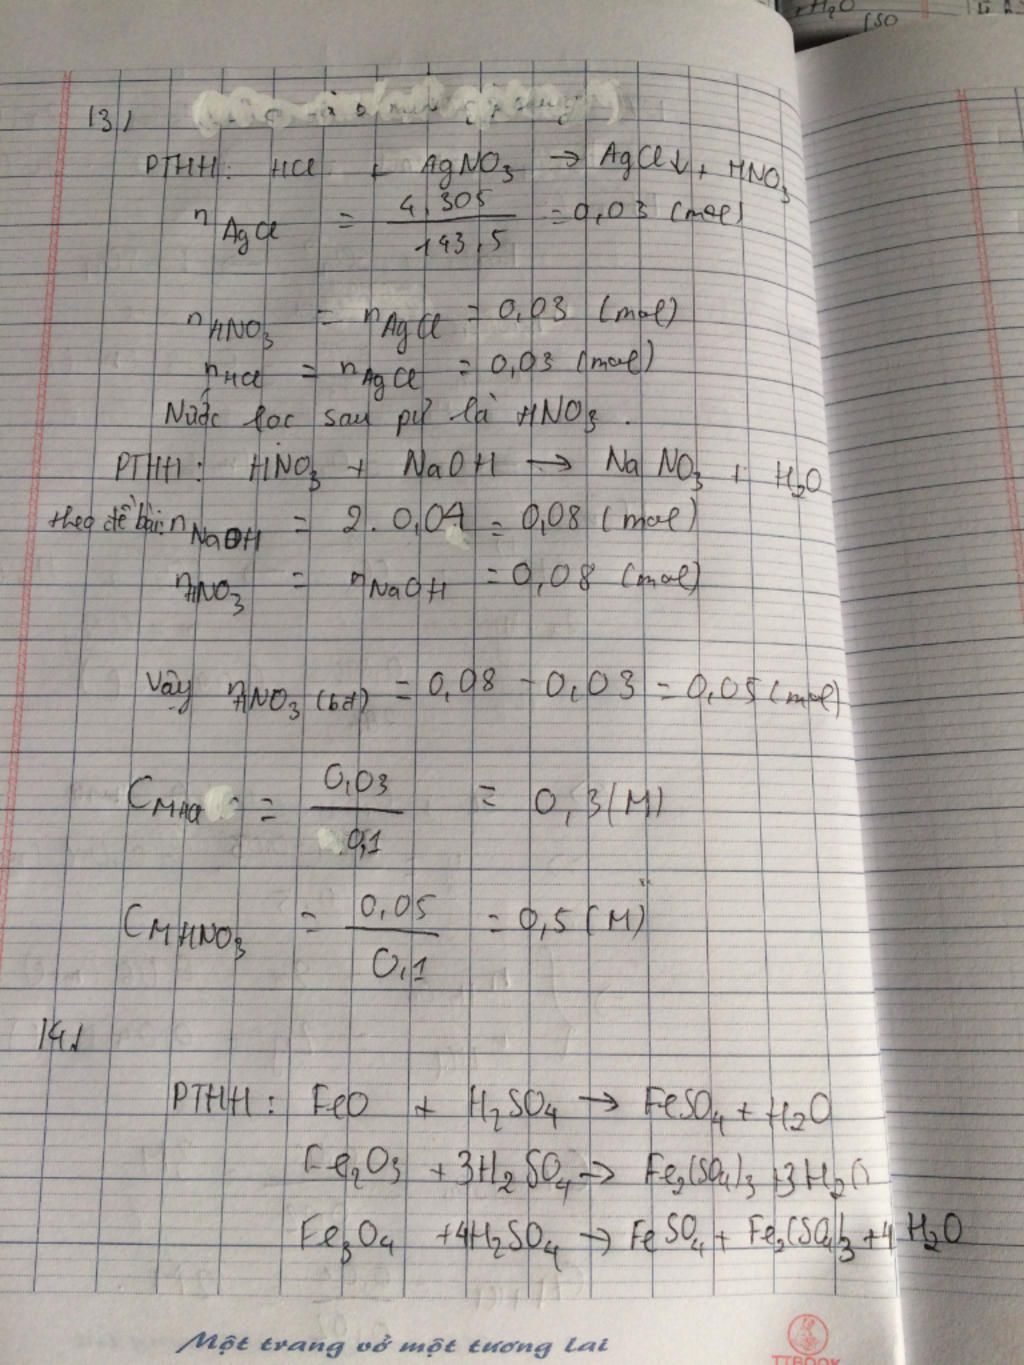 H2O
(SO
13/
PTHH: HCl + AgNO3 → AgCl↓ + HNO3
nAgCl = 4,305 / 143,5 = 0,03 (mol)
nHNO3 = nAgCl = 0,03 (mol)
nHCl = nAgCl = 0,03 (mol)
Nước lọc sau pứ là HNO3.
PTHH: HNO3 + NaOH → NaNO3 + H2O
theo đề bài: nNaOH = 2. 0,04 = 0,08 (mol)
nHNO3 = nNaOH = 0,08 (mol)
Vậy nHNO3 (bđ) = 0,08 - 0,03 = 0,05 (mol)
CMHCl = 0,03 / 0,1 = 0,3 (M)
CMHNO3 = 0,05 / 0,1 = 0,5 (M)
14/
PTHH: FeO + H2SO4 → FeSO4 + H2O
Fe2O3 + 3H2SO4 → Fe2(SO4)3 + 3H2O
Fe3O4 + 4H2SO4 → FeSO4 + Fe2(SO4)3 + 4H2O
Một trang vở một tương lai
TTBOOK